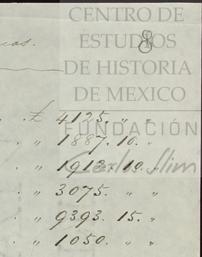 CENTRO DE
ESTUDIOS
DE HISTORIA
DE MEXICO
FUNDACIÓN
Carlos Slim
8
£ 4125. " "
" 1887. 10. "
" 1913. 10. "
" 3075. " "
" 9393. 15. "
" 1050. " "